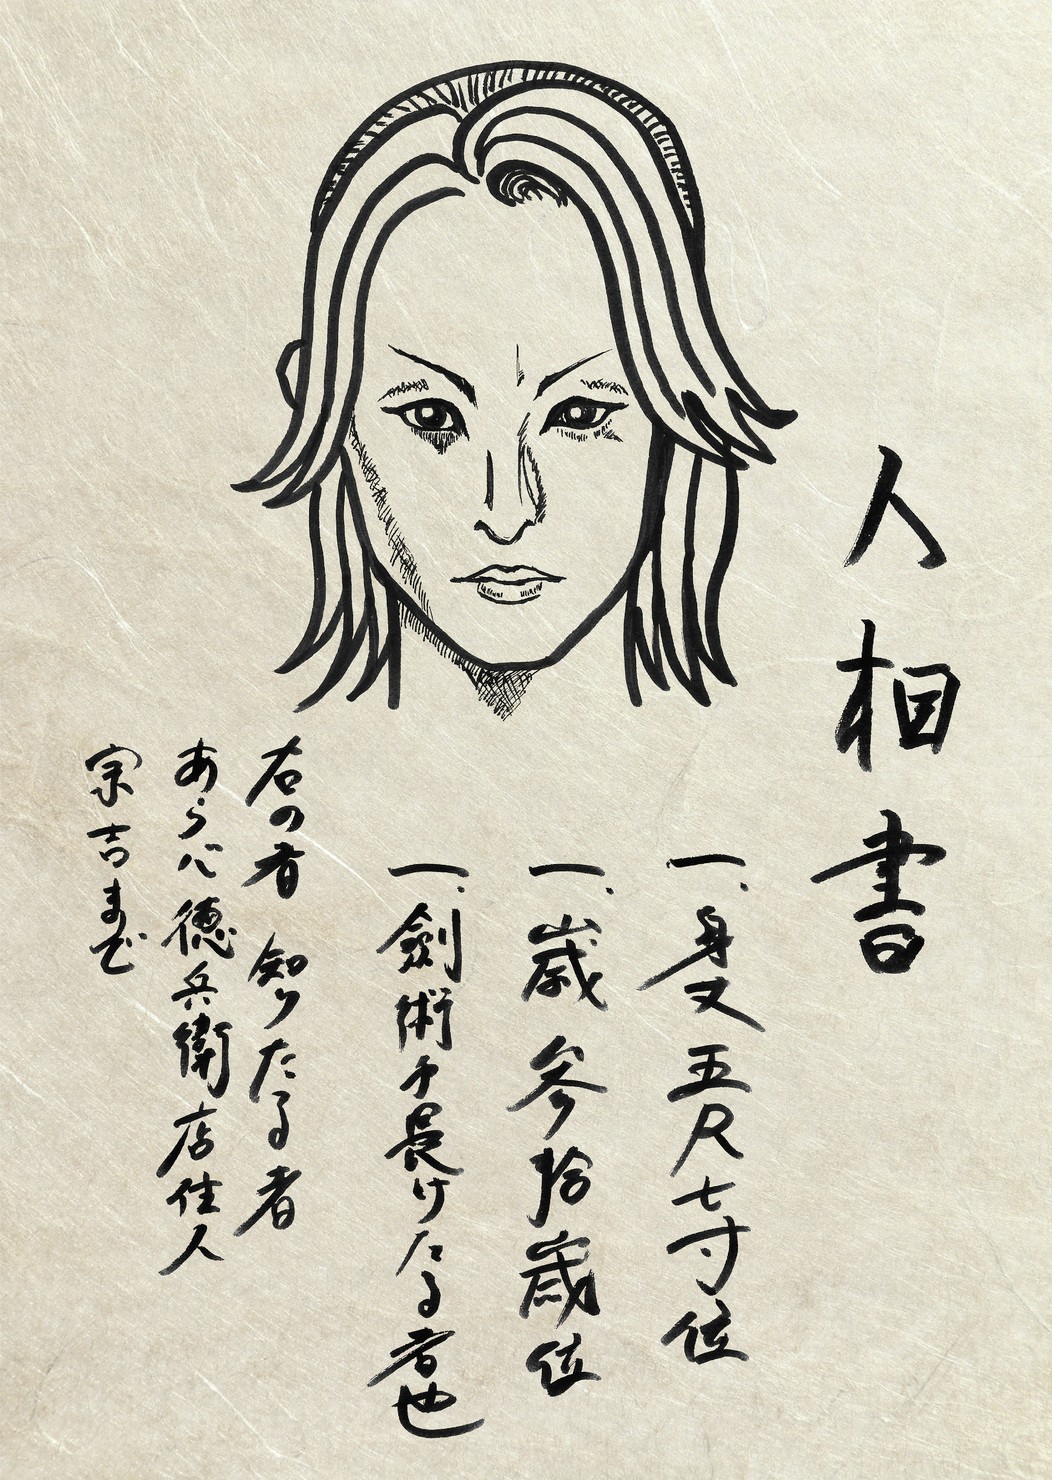 人相書
一、身丈五尺七寸位
一、歳 参拾歳位
一、劍術に長けたる者也
右の者 知りたる者
あらば 徳兵衛店住人
宗吉まで